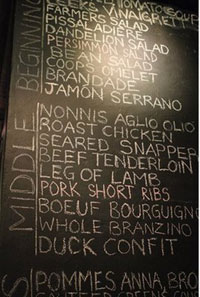 VINAIGRETTE
FARMERS SALAD
PISSALADIÈRE
DANDELION SALAD
PERSIMMON SALAD
BEAN SALAD
COOPS OMELET
BRANDADE
JAMÓN SERRANO
BEGINNING
MIDDLE
NONNIS AGLIO OLIO
ROAST CHICKEN
SEARED SNAPPER
BEEF TENDERLOIN
LEG OF LAMB
PORK SHORT RIBS
BOEUF BOURGUIGNO
WHOLE BRANZINO
DUCK CONFIT
S
POMMES ANNA, BRO
GREENS SOU